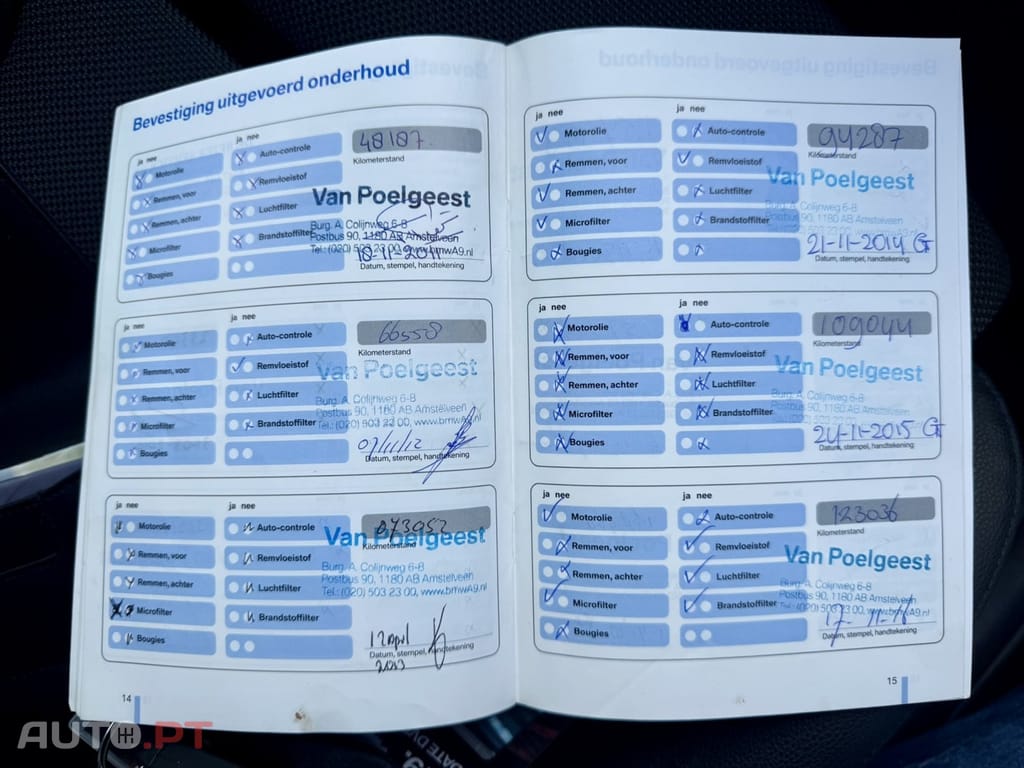 Bevestiging uitgevoerd onderhoud
ja nee
Motorolie
Remmen, voor
Remmen, achter
Microfilter
Bougies
ja nee
Auto-controle
Remvloeistof
Luchtfilter
Brandstoffilter
48187
Kilometerstand
Van Poelgeest
Burg. A. Colijnweg 6-8
Postbus 90, 1180 AB Amstelveen
Tel.: (020) 503 23 00, www.bmwA9.nl
18-11-2011
Datum, stempel, handtekening
ja nee
Motorolie
Remmen, voor
Remmen, achter
Microfilter
Bougies
ja nee
Auto-controle
Remvloeistof
Luchtfilter
Brandstoffilter
66558
Kilometerstand
Van Poelgeest
Burg. A. Colijnweg 6-8
Postbus 90, 1180 AB Amstelveen
Tel.: (020) 503 23 00, www.bmwA9.nl
07/11/12
Datum, stempel, handtekening
ja nee
Motorolie
Remmen, voor
Remmen, achter
Microfilter
Bougies
ja nee
Auto-controle
Remvloeistof
Luchtfilter
Brandstoffilter
073952
Kilometerstand
Van Poelgeest
Burg. A. Colijnweg 6-8
Postbus 90, 1180 AB Amstelveen
Tel.: (020) 503 23 00, www.bmwA9.nl
12 april
2013
Datum, stempel, handtekening
14
ja nee
Motorolie
Remmen, voor
Remmen, achter
Microfilter
Bougies
ja nee
Auto-controle
Remvloeistof
Luchtfilter
Brandstoffilter
94287
Kilometerstand
Van Poelgeest
Burg. A. Colijnweg 6-8
Postbus 90, 1180 AB Amstelveen
21-11-2014 G
Datum, stempel, handtekening
ja nee
Motorolie
Remmen, voor
Remmen, achter
Microfilter
Bougies
ja nee
Auto-controle
Remvloeistof
Luchtfilter
Brandstoffilter
109044
Kilometerstand
Van Poelgeest
Burg. A. Colijnweg 6-8
Postbus 90, 1180 AB Amstelveen
24-11-2015 G
Datum, stempel, handtekening
ja nee
Motorolie
Remmen, voor
Remmen, achter
Microfilter
Bougies
ja nee
Auto-controle
Remvloeistof
Luchtfilter
Brandstoffilter
123036
Kilometerstand
Van Poelgeest
Burg. A. Colijnweg 6-8
Postbus 90, 1180 AB Amstelveen
Tel.: (020) 503 23 00, www.bmwA9.nl
17-11-16
Datum, stempel, handtekening
15
AUTO.PT
DATE